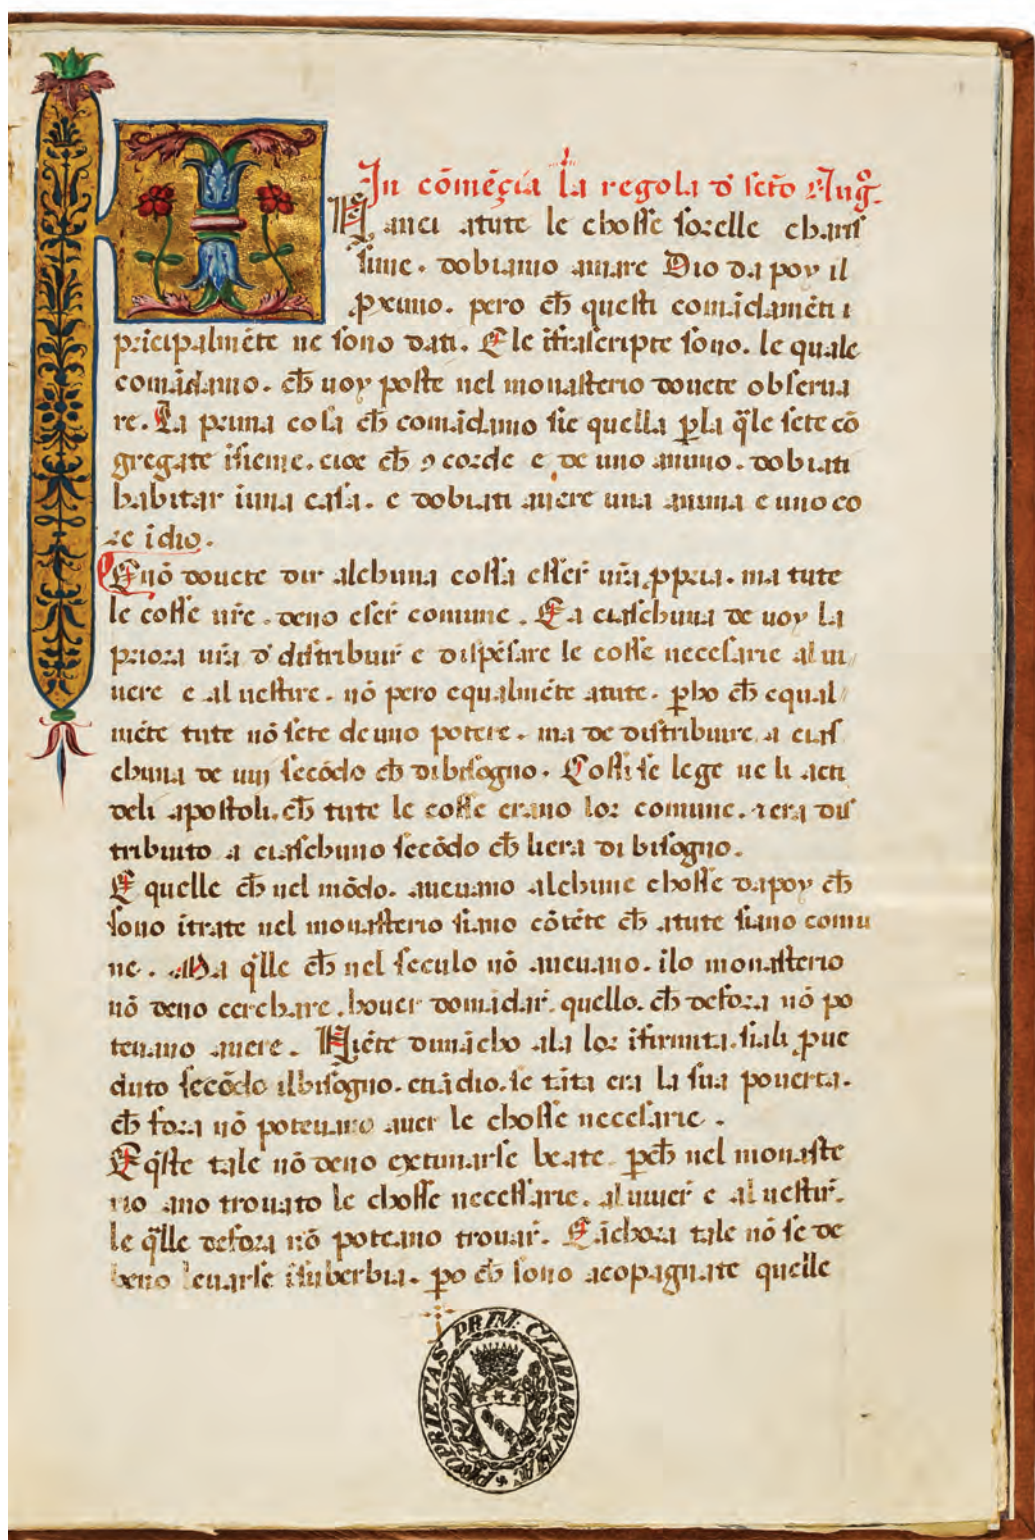 In cōmēçia la regola d' sctō Aug.
Nanci atute le chosse sorelle charis
sime. dobiamo amare Dio da poy il
proximo. pero ch questi comādamēti
pricipalmēte ne sono dati. E le ifrascripte sono. le quale
comādamo. ch uoy poste nel monasterio douete obserua
re. La prima cosa ch comādamo sie quella p la qle sete cō
gregate isieme. cioe ch ꝯcorde e de uno animo. dobiati
habitar iuna casa. e dobiati auere una anima e uno co
re idio.
E nō douete dir alchuna cossa esser ura ppria. ma tute
le cosse ure. deno eser comune. E a ciaschuna de uoy la
priora ura d' distribuir e dispēsare le cosse necesarie al ui
uere e al uestire. nō pero equalmēte atute. pho ch equal
mēte tute nō sete de uno potere. ma de distribuire a cias
chuna de uuj secōdo ch di bisogno. Cossi se lege ne li acti
deli apostoli. ch tute le cosse erano lor comune. ⁊ era dis
tribuito a ciaschuno secōdo ch liera di bisogno.
E quelle ch nel mōdo. aueuano alchune chosse dapoy ch
sono itrate nel monasterio siano cōtēte ch atute siano comu
ne. Ma qlle ch nel seculo nō aueuano. ilo monasterio
nō deno cerchare. houer domādar. quello. ch defora nō po
teuano auere. Niēte dimācho ala lor ifirmita. siali proue
duto secōdo il bisogno. etiādio. se tāta era la sua pouerta.
ch fora nō poteuano auer le chosse necesarie.
E qste tale nō deno extimarse beate pch nel monaste
rio ano trouato le chosse necessarie. al uiuer e al uestir.
le qlle defora nō poteano trouar. E āchora tale nō se de
beno leuarse isuberbia. po ch sono acopagnate quelle
PROPRIETAS PRIM. CLARAMONTIS